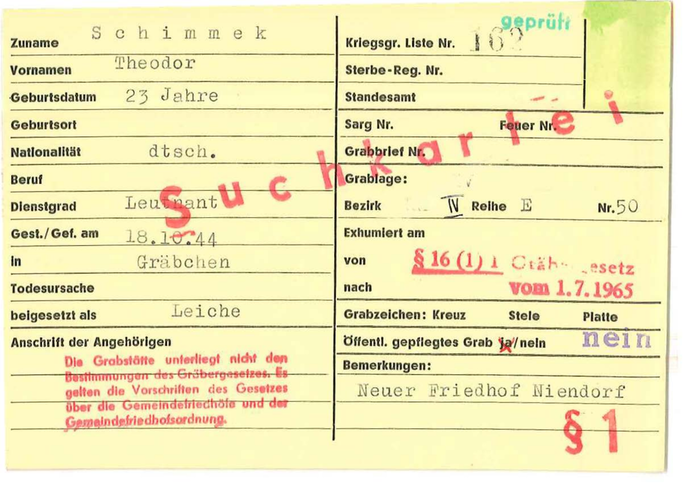 Zuname Schimmek
Vornamen Theodor
Geburtsdatum 23 Jahre
Geburtsort
Nationalität dtsch.
Beruf
Dienstgrad Leutnant
Gest./Gef. am 18.10.44
in Gräbchen
Todesursache
beigesetzt als Leiche
Anschrift der Angehörigen
Die Grabstätte unterliegt nicht den
Bestimmungen des Gräbergesetzes. Es
gelten die Vorschriften des Gesetzes
über die Gemeindefriedhöfe und der
Gemeindefriedhofsordnung.
Suchkartei
geprüft
Kriegsgr. Liste Nr. 162
Sterbe-Reg. Nr.
Standesamt
Sarg Nr. Feuer Nr.
Grabbrief Nr.
Grablage:
Bezirk IV Reihe E Nr. 50
Exhumiert am
von § 16 (1) 1
nach vom 1.7.1965
Grabzeichen: Kreuz Stele Platte
Öffentl. gepflegtes Grab ja/nein nein
Bemerkungen:
Neuer Friedhof Niendorf
§ 1